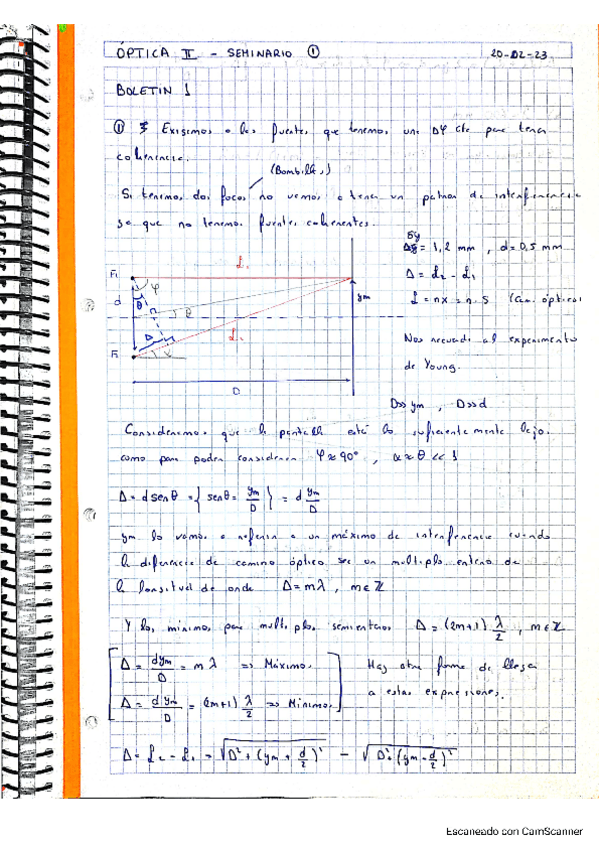 ÓPTICA II - SEMINARIO ① 20-02-23
BOLETIN 1
① Exisimos a las fuentes que tenemos una Δφ cte para tener
coherencia.
(Bombillas)
Si tenemos dos focos no vamos a tener un patron de interferencia
ya que no tenemos fuentes coherentes.
δy
= 1,2 mm , d = 0,5 mm
Δ = L₂ - L₁
L = nx = n·s (Cam. óptico)
Nos recuerda al experimento
de Young.
D>>ym , D>>d
F₁ L₁ φ
d θ θ ym
Δ L₂
F₂ α
D
Consideremos que la pantalla está lo suficientemente lejos
como para poder considerar φ ≈ 90° , α ≈ θ << 1
Δ = d senθ = { senθ = ym/D } = d ym/D
ym lo vamos a referir a un máximo de interferencia cuando
la diferencia de camino óptico sea un multiplo entero de
la longitud de onda Δ = mλ , m ∈ Z
Y los mínimos para multiplos semienteros Δ = (2m+1) λ/2 , m ∈ Z
Δ = dym/D = mλ => Máximos
Hay otra forma de llegar
a estas expresiones.
Δ = dym/D = (2m+1) λ/2 => Mínimos
Δ = L₂ - L₁ = √(D² + (ym + d/2)²) - √(D² + (ym - d/2)²)
Escaneado con CamScanner